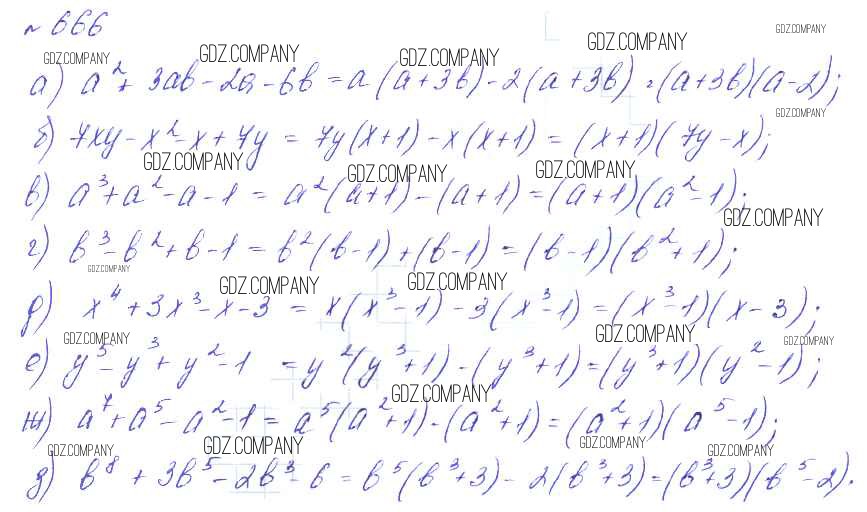 № 666
GDZ.COMPANY GDZ.COMPANY GDZ.COMPANY GDZ.COMPANY GDZ.COMPANY
а) a² + 3ab - 2a - 6b = a(a+3b) - 2(a+3b) = (a+3b)(a-2);
GDZ.COMPANY
б) 7xy - x² - x + 7y = 7y(x+1) - x(x+1) = (x+1)(7y-x);
GDZ.COMPANY GDZ.COMPANY GDZ.COMPANY
в) a³ + a² - a - 1 = a²(a+1) - (a+1) = (a+1)(a²-1);
GDZ.COMPANY
г) b³ - b² + b - 1 = b²(b-1) + (b-1) = (b-1)(b²+1);
GDZ.COMPANY GDZ.COMPANY GDZ.COMPANY
д) x⁴ + 3x³ - x - 3 = x(x³-1) - 3(x³-1) = (x³-1)(x-3);
GDZ.COMPANY GDZ.COMPANY GDZ.COMPANY
е) y⁵ - y³ + y² - 1 = y²(y³+1) - (y³+1) = (y³+1)(y²-1);
GDZ.COMPANY
ж) a⁷ + a⁵ - a² - 1 = a⁵(a²+1) - (a²+1) = (a²+1)(a⁵-1);
GDZ.COMPANY GDZ.COMPANY GDZ.COMPANY GDZ.COMPANY
д) b⁸ + 3b⁵ - 2b³ - 6 = b⁵(b³+3) - 2(b³+3) = (b³+3)(b⁵-2).